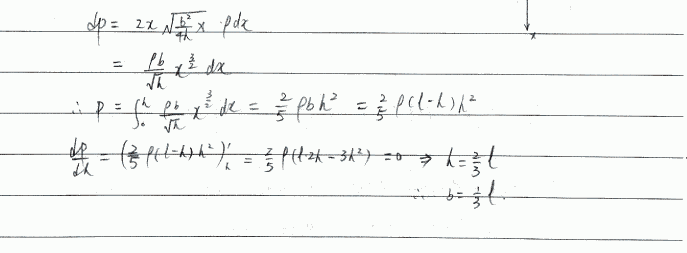 dp = 2x √(b²/4h x) · ρdx
= ρb/√h x^(3/2) dx
x
∴ P = ∫₀ʰ ρb/√h x^(3/2) dx = 2/5 ρbh² = 2/5 ρ(l-h)h²
dp/dh = (2/5 ρ(l-h)h²)'ₕ = 2/5 ρ(l·2h - 3h²) = 0 ⇒ h = 2/3 l
∴ b = 1/3 l.